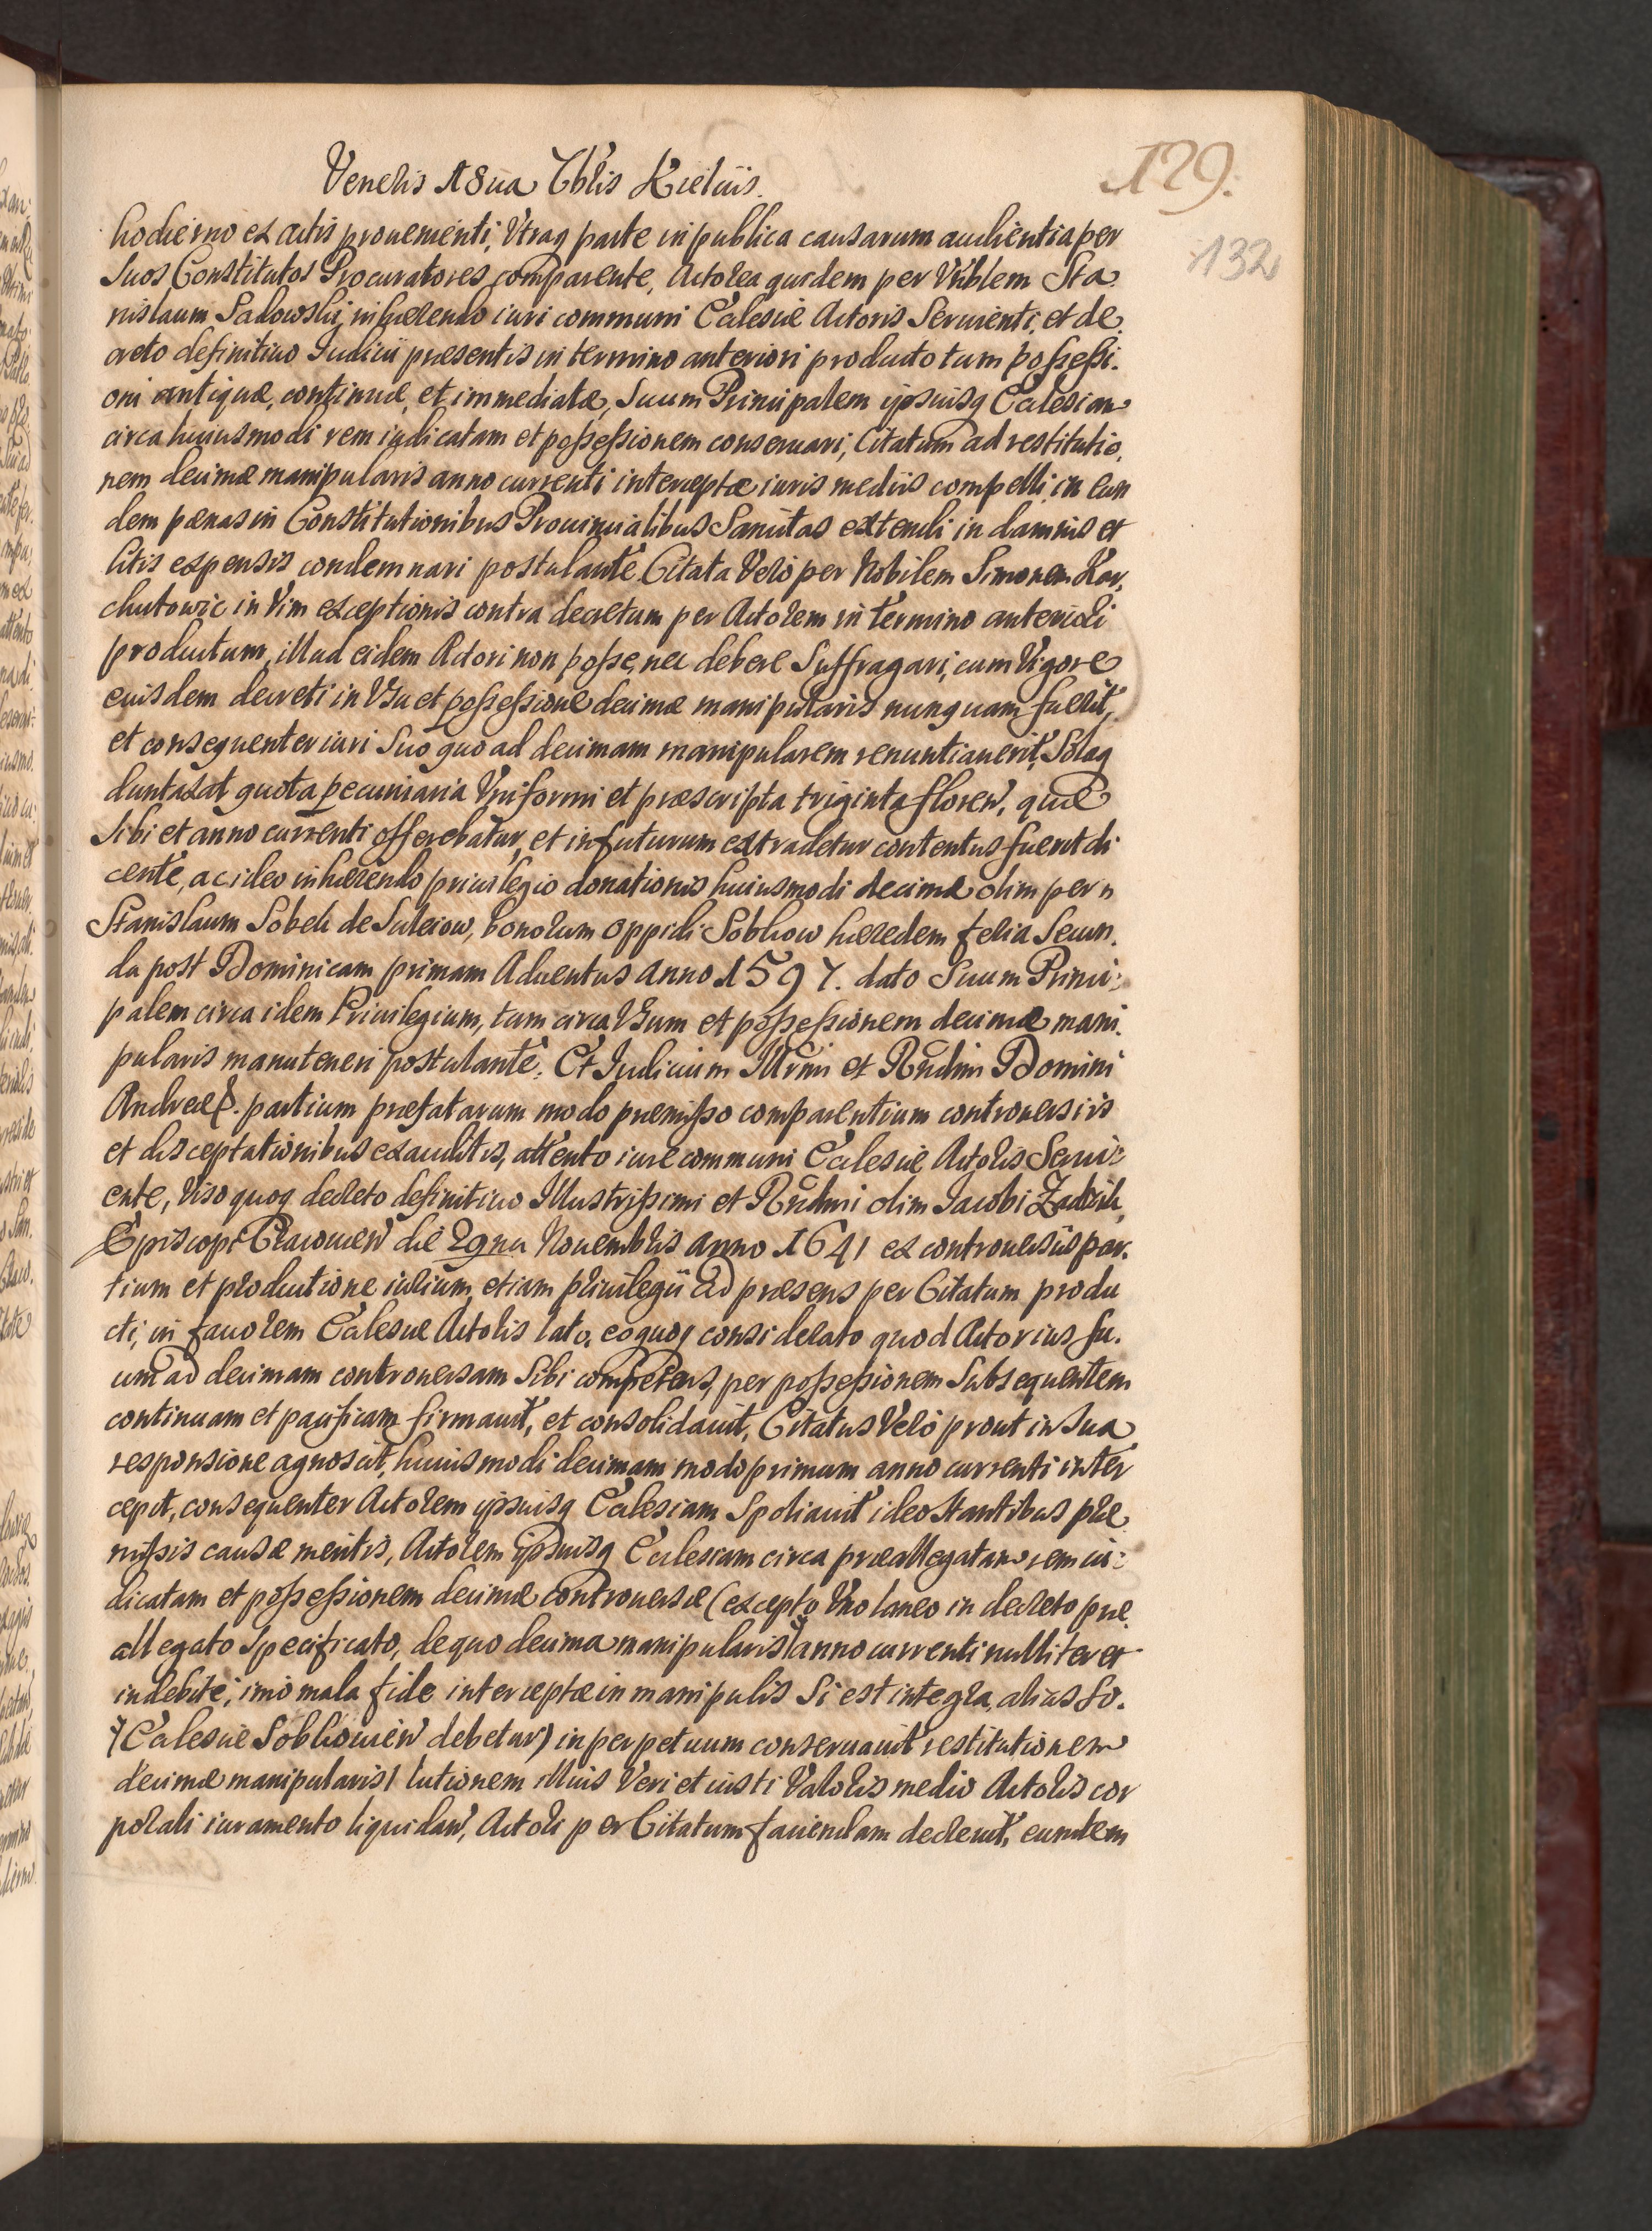 Veneris 18va 7bris Kielciis.
129.
132
hodierno ex actis prouenienti, Vtraq parte in publica causarum audientia per
suos Constitutos Procuratores comparente, Actorea quidem per Vrblem Sta
nislaum Sadowski, inhærendo iuri communi Ecclesiæ Actoris Seruienti, et de
creto definitiuo Iudicii præsentis in termino anteriori producto tum poſseſsi.
oni antiquæ, continuæ, et immediatæ, Suum Principalem ipsiusq Ecclesiam
circa huiusmodi rem iudicatam et poſseſsionem conseruari, Citatum ad restitutio.
nem decimæ manipularis anno currenti interceptæ iuris mediis compelli, in eun
dem pænas in Constitutionibus Prouincialibus Sancitas extendi in damnis et
litis expensis condemnari postulante Citata Verò per Nobilem Simonem Kar,
chutowic in Vim exceptionis contra decretum per Actorem in termino anteriori
productum, illud eidem Actori non poſse, nec debere Suffragari, cum Vigore
eiusdem decreti in Vsu et poſseſsione decimæ manipularis nunquam fuerit,
et consequenter iuri Suo quo ad decimam manipularem renuntiauerit, Solaq
duntaxat quota pecuniaria Vniformi et præscripta triginta floren, quæ
Sibi et anno currenti offerebatur, et in futurum extradetur contentus fuerit di
cente, ac ideo inhærendo priuilegio donationis huiusmodi decimæ olim per n
Stanislaum Sobek de Suleiow, bonorum oppidi Sobkow hæredem feria Secun.
da post Dominicam primam Aduentus Anno 1597. dato Suum Princi:
palem circa idem Priuilegium, tum circa Vsum et poſseſsionem decimæ mani.
pularis manuteneri postulante. Et Iudicium Illrmi et Rndmi Domini
Andreæ P. partium præfatarum modo præmiſso comparentium controuersiis
et disceptationibus exauditis, attento iure communi Ecclesiæ Actoris Serui:
ente, Viso quoq decreto definitiuo Illustriſsimi et Rndmi olim Iacobi Zadzik,
Episcopi Cracouien die 29na Nouembris Anno 1641 ex controuersiis par.
tium et productione iurium, etiam priuilegii ad præsens per Citatum produ
cti, in fauorem Ecclesiæ Actoris lato, eoquoq considerato quod Actor ius su.
um ad decimam controuersam Sibi competens, per poſseſsionem Subsequentem
continuam et pacificam firmauit, et consolidauit, Citatus Verò prout in Sua
responsione agnoscit, huiusmodi decimam modo primum anno currenti inter
cepit, consequenter Actorem ipsiusq Ecclesiam Spoliauit ideo Stantibus præ
miſsis causæ meritis, Actorem ipsiusq Ecclesiam circa præallegatam rem iu:
dicatam et poſseſsionem decimæ controuersæ (excepto Vno laneo in decreto præ
allegato Specificato, de quo decima manipularis anno currenti nulliter et
indebite, imò mala fide interceptæ in manipulis Si est integra, alias So.
Ecclesiæ Sobkouien debetur) in perpetuum conseruauit restitutionem
decimæ manipularis lutionem illius Veri et iusti Valoris medio Actoris cor
porali iuramento liquidan, Actori per Citatum faciendam decreuit, eundem